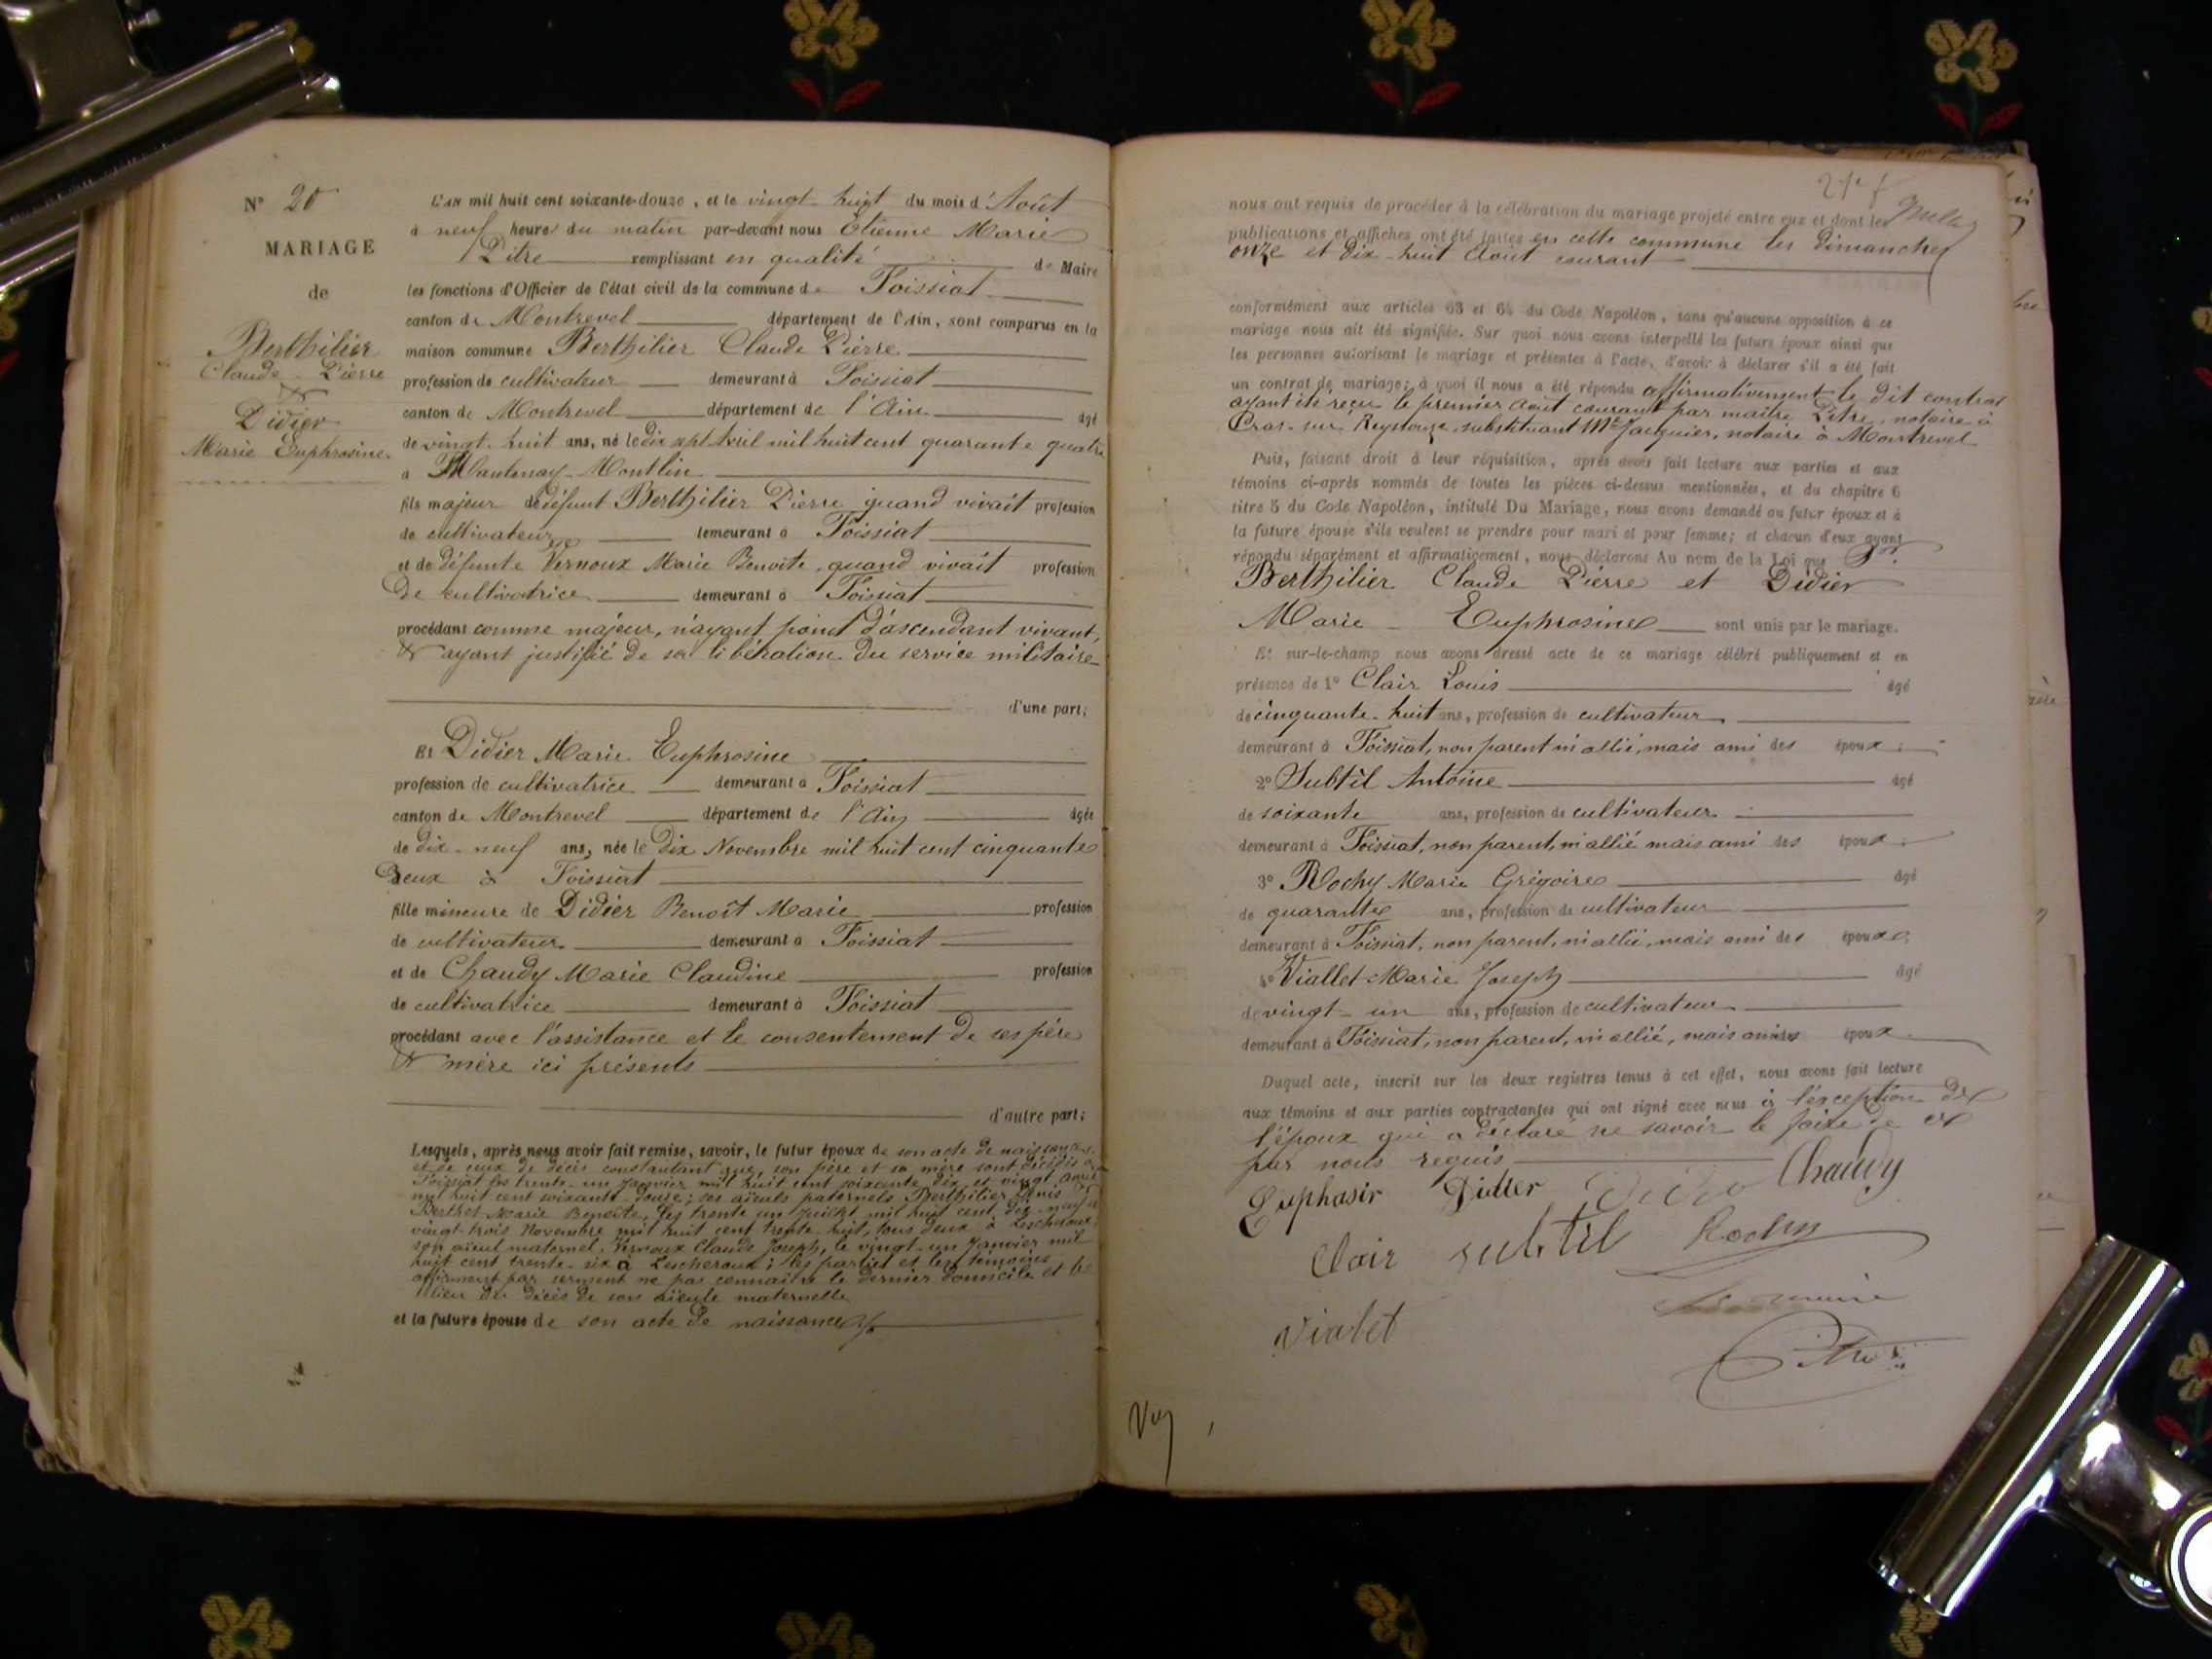 N° 20
MARIAGE
de
Berthilier
Claude-Pierre
&
Didier
Marie Euphrosine.
L'AN mil huit cent soixante-douze, et le vingt-huit du mois d'Août
à neuf heures du matin par-devant nous Etienne Marie
Pitre remplissant en qualité de Maire
les fonctions d'Officier de l'état civil de la commune de Foissiat
canton de Montrevel département de l'Ain, sont comparus en la
maison commune Berthilier Claude Pierre
profession de cultivateur demeurant à Foissiat
canton de Montrevel département de l'Ain âgé
de vingt-huit ans, né le dix sept Avril mil huit cent quarante quatre
à Mantenay-Montlin
fils majeur de défunt Berthilier Pierre quand vivait profession
de cultivateur demeurant à Foissiat
et de défunte Vernoux Marie Benoite, quand vivait profession
De cultivatrice demeurant à Foissiat
procédant comme majeur, n'ayant point d'ascendant vivant,
& ayant justifié de sa libération du service militaire
d'une part;
Et Didier Marie Euphrosine
profession de cultivatrice demeurant à Foissiat
canton de Montrevel département de l'Ain âgée
de dix-neuf ans, née le Dix Novembre mil huit cent cinquante
Deux à Foissiat
fille mineure de Didier Benoît Marie profession
de cultivateur demeurant à Foissiat
et de Chaudy Marie Claudine profession
de cultivatrice demeurant à Foissiat
procédant avec l'assistance et le consentement de ses père
& mère ici présents
d'autre part;
Lesquels, après nous avoir fait remise, savoir, le futur époux de son acte de naissance,
et de ceux de décès constantant que, son père et sa mère sont décédés à
Foissiat les trente-un Janvier mil huit cent soixante dix et vingt
mil huit cent soixante-douze; ses aïeuls paternels Berthilier Denis &
Berthet Marie Benoite, les trente un Juillet mil huit cent dix-neuf et
vingt-trois Novembre mil huit cent trente-huit, tous deux à Lescheroux;
son aïeul maternel, Vernoux Claude Joseph, le vingt-un Janvier mil
huit cent trente-six à Lescheroux; les parties et les témoins
affirmant par serment ne pas connaître le dernier domicile et le
lieu du décès de son aïeule maternelle
et la future épouse de son acte de naissance
nous ont requis de procéder à la célébration du mariage projeté entre eux et dont les
publications et affiches ont été faites en cette commune les dimanches
onze et dix-huit Août courant
conformément aux articles 63 et 64 du Code Napoléon, sans qu'aucune opposition à ce
mariage nous ait été signifiée. Sur quoi nous avons interpellé les futurs époux ainsi que
les personnes autorisant le mariage et présentes à l'acte, d'avoir à déclarer s'il a été fait
un contrat de mariage; à quoi il nous a été répondu affirmativement, le dit contrat
ayant été reçu le premier Août courant par maître Pitre, notaire à
Cras-sur-Reyssouze, substituant Me Jacquier, notaire à Montrevel
Puis, faisant droit à leur réquisition, après avoir fait lecture aux parties et aux
témoins ci-après nommés de toutes les pièces ci-dessus mentionnées, et du chapitre 6
titre 5 du Code Napoléon, intitulé Du Mariage, nous avons demandé au futur époux et à
la future épouse s'ils veulent se prendre pour mari et pour femme; et chacun d'eux ayant
répondu séparément et affirmativement, nous déclarons Au nom de la Loi que
Berthilier Claude Pierre et Didier
Marie-Euphrosine sont unis par le mariage.
Et sur-le-champ nous avons dressé acte de ce mariage célébré publiquement et en
présence de 1° Clair Louis âgé
de cinquante-huit ans, profession de cultivateur
demeurant à Foissiat, non parent ni allié, mais ami des époux;
2° Subtil Antoine âgé
de soixante ans, profession de cultivateur
demeurant à Foissiat, non parent, ni allié mais ami des époux
3° Rochy Marie Grégoire âgé
de quarante ans, profession de cultivateur
demeurant à Foissiat, non parent, ni allié, mais ami des époux
4° Viallet Marie Joseph âgé
de vingt-un ans, profession de cultivateur
demeurant à Foissiat, non parent, ni allié, mais ami des époux
Duquel acte, inscrit sur les deux registres tenus à cet effet, nous avons fait lecture
aux témoins et aux parties contractantes qui ont signé avec nous à l'exception de
l'époux qui a déclaré ne savoir le faire de ce
par nous requis
Euphasir Didier Didier Chaudy
Clair subtil Rochy
Le maire
Vialet
Pitre